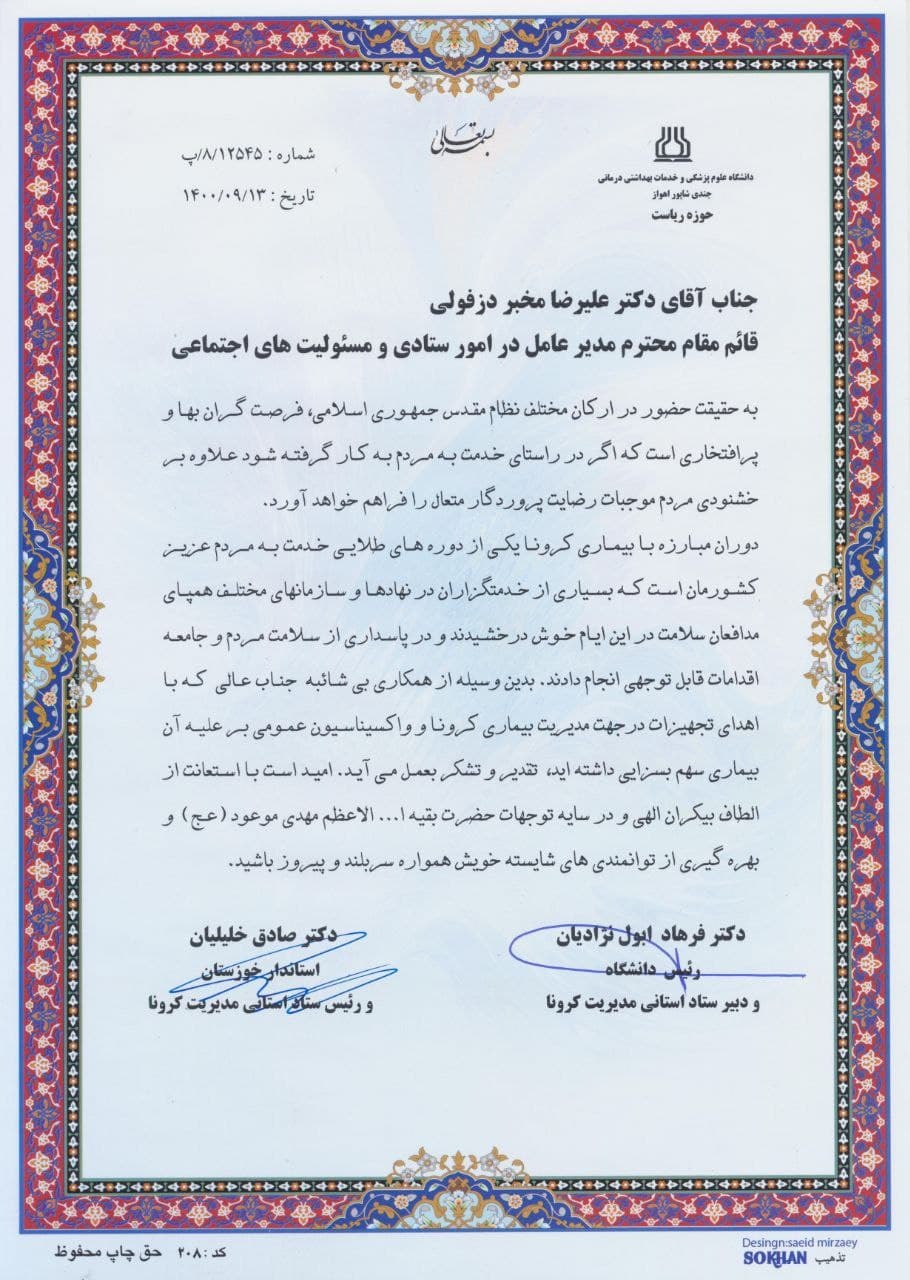 بسمه تعالی
دانشگاه علوم پزشکی و خدمات بهداشتی درمانی
جندی شاپور اهواز
حوزه ریاست
شماره : ۸/۱۲۵۴۵/پ
تاریخ : ۱۴۰۰/۰۹/۱۳
جناب آقای دکتر علیرضا مخبر دزفولی
قائم مقام محترم مدیر عامل در امور ستادی و مسئولیت های اجتماعی
به حقیقت حضور در ارکان مختلف نظام مقدس جمهوری اسلامی، فرصت گران بها و
پرافتخاری است که اگر در راستای خدمت به مردم به کار گرفته شود علاوه بر
خشنودی مردم موجبات رضایت پروردگار متعال را فراهم خواهد آورد.
دوران مبارزه با بیماری کرونا یکی از دوره های طلایی خدمت به مردم عزیز
کشورمان است که بسیاری از خدمتگزاران در نهادها و سازمانهای مختلف همپای
مدافعان سلامت در این ایام خوش درخشیدند و در پاسداری از سلامت مردم و جامعه
اقدامات قابل توجهی انجام دادند. بدین وسیله از همکاری بی شائبه جناب عالی که با
اهدای تجهیزات درجهت مدیریت بیماری کرونا و واکسیناسیون عمومی بر علیه آن
بیماری سهم بسزایی داشته اید، تقدیر و تشکر بعمل می آید. امید است با استعانت از
الطاف بیکران الهی و در سایه توجهات حضرت بقیه ا... الاعظم مهدی موعود (عج) و
بهره گیری از توانمندی های شایسته خویش همواره سربلند و پیروز باشید.
دکتر فرهاد ابول نژادیان
رئیس دانشگاه
و دبیر ستاد استانی مدیریت کرونا
دکتر صادق خلیلیان
استاندار خوزستان
و رئیس ستاد استانی مدیریت کرونا
Desingn:saeid mirzaey
تذهیب SOKHAN
کد : ۲۰۸ حق چاپ محفوظ